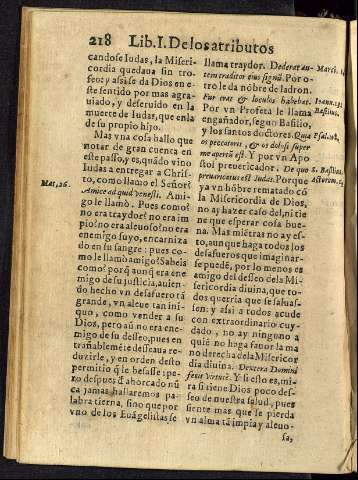 218 Lib. I. De los atributos
candose Iudas, la Miseri-
cordia quedaua sin tro-
feos; y assi se da Dios en es-
te sentido por mas agra-
uiado, y deseruido en la
muerte de Iudas, que enla
de su propio hijo.
Mas vna cosa hallo que
notar de gran cuenta en
este passo, y es, quãdo vino
Iudas a entregar a Chris-
to, como llamo el Señor?
Mat. 26.
Amice ad quid venisti. Ami-
go le llamò. Pues como?
no era traydor? no era im-
pio? no era aleuoso? no era
enemigo suyo, encarniza
do en su sangre: pues co-
mo le llamò amigo? Sabeis
como? porq̃ aunq̃ era ene-
migo de su justicia, auien-
do hecho vn desafuero tã
grande, vn aleue tan ini-
quo, como vender a su
Dios, pero aũ no era ene-
migo de su desseo; pues en
trañablemẽte desseaua re-
duzirle, y en orden desto
permitiò q̃ le besasse: pe-
ro despues q̃ ahorcado nũ
ca jamas hallaremos pa-
labra tierna, sino que por
vno de los Euãgelistas se
llama traydor. Dederat au-
Marci. 14
tem traditor eius signũ. Por o-
tro le da nõbre de ladron.
Fur erat & loculos habebat.
Ioann. 13
Por vn Profeta le llama
Basilius.
engañador, segun Basilio,
y los santos doctores. Quia
Psal. 108.
os peccatoris, & os dolosi super
me apertũ est. Y por vn Apo
stol preuericador. De quo
S. Basilius
preuaricatus est Iudas. Porque
Actorum.
ya vn hõbre rematado cũ
la Misericordia de Dios,
no ay hazer caso del, ni tie
ne que esperar cosa bue-
na. Mas miẽtras no ay es-
to, aunque haga todos los
desafueros que imaginar-
se puedẽ, por lo menos es
amigo del desseo dela Mi-
sericordia diuina, que to-
dos querria que se saluas-
sen: y assi a todos acude
con extraordinario cuy-
dado, no ay ninguno a
quiẽ no haga fauor la ma
no derecha dela Misericor
dia diuina. Dextera Domini
fecit virtutẽ. Y si esto es, mi-
ra si tiene Dios poco des-
seo de nuestra salud, pues
siente mas que se pierda
vn alma tã impia y aleuo-
sa,